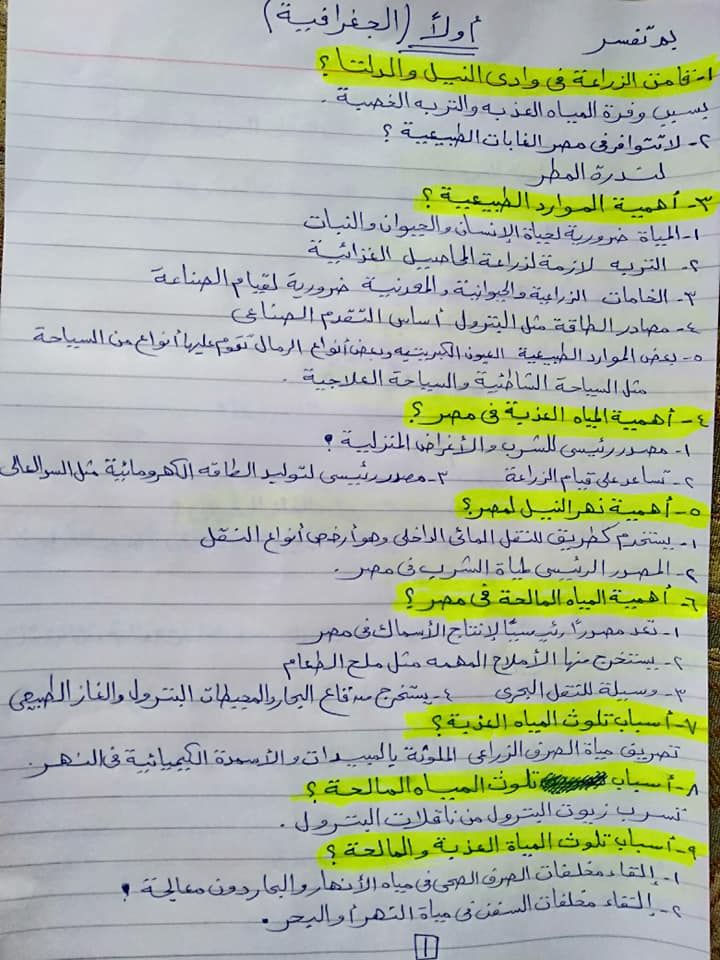 أولاً (الجغرافية)
بم تفسر
١- قامت الزراعة فى وادى النيل والدلتا ؟
بسبب وفرة المياه العذبه والتربه الخصبة .
٢- لا تتوافر فى مصر الغابات الطبيعية ؟
لندرة المطر
٣- أهمية الموارد الطبيعية ؟
١- المياة ضرورية لحياة الإنسان والحيوان والنبات
٢- التربه لازمة لزراعة المحاصيل الغذائية
٣- الخامات الزراعية والحيوانية والمعدنية ضرورية لقيام الصناعة
٤- مصادر الطاقة مثل البترول أساس التقدم الصناعى
٥- بعض الموارد الطبيعية العيون الكبريتيه وبعض أنواع الرمال تقوم عليها أنواع من السياحة
مثل السياحة الشاطئية والسياحة العلاجية .
٤- أهمية المياه العذبة فى مصر ؟
١- مصدر رئيسى للشرب والأغراض المنزلية .
٢- تساعد على قيام الزراعة ٣- مصدر رئيسى لتوليد الطاقه الكهرومائية مثل السد العالى
٥- أهمية نهر النيل لمصر ؟
١- يستخدم كطريق للنقل المائى الداخلى وهو أرخص أنواع النقل
٢- المصدر الرئيسى لمياة الشرب فى مصر .
٦- أهمية المياه المالحة فى مصر ؟
١- تعد مصدرًا رئيسيًا لإنتاج الأسماك فى مصر
٢- يستخرج منها الأملاح المهمه مثل ملح الطعام
٣- وسيلة للنقل البحرى ٤- يستخرج من قاع البحار والمحيطات البترول والغاز الطبيعي
٧- أسباب تلوث المياه العذبة ؟
تصريف مياة الصرف الزراعى الملوثة بالمبيدات والأسمدة الكيميائية فى النهر .
٨- أسباب تلوث المياه المالحة ؟
تسرب زيوت البترول من ناقلات البترول .
٩- أسباب تلوث المياة العذبة والمالحة ؟
١- إلقاء مخلفات الصرف الصحى فى مياه الأنهار والبحار دون معالجة .
٢- إلقاء مخلفات السفن فى مياة النهر أو البحر .
١